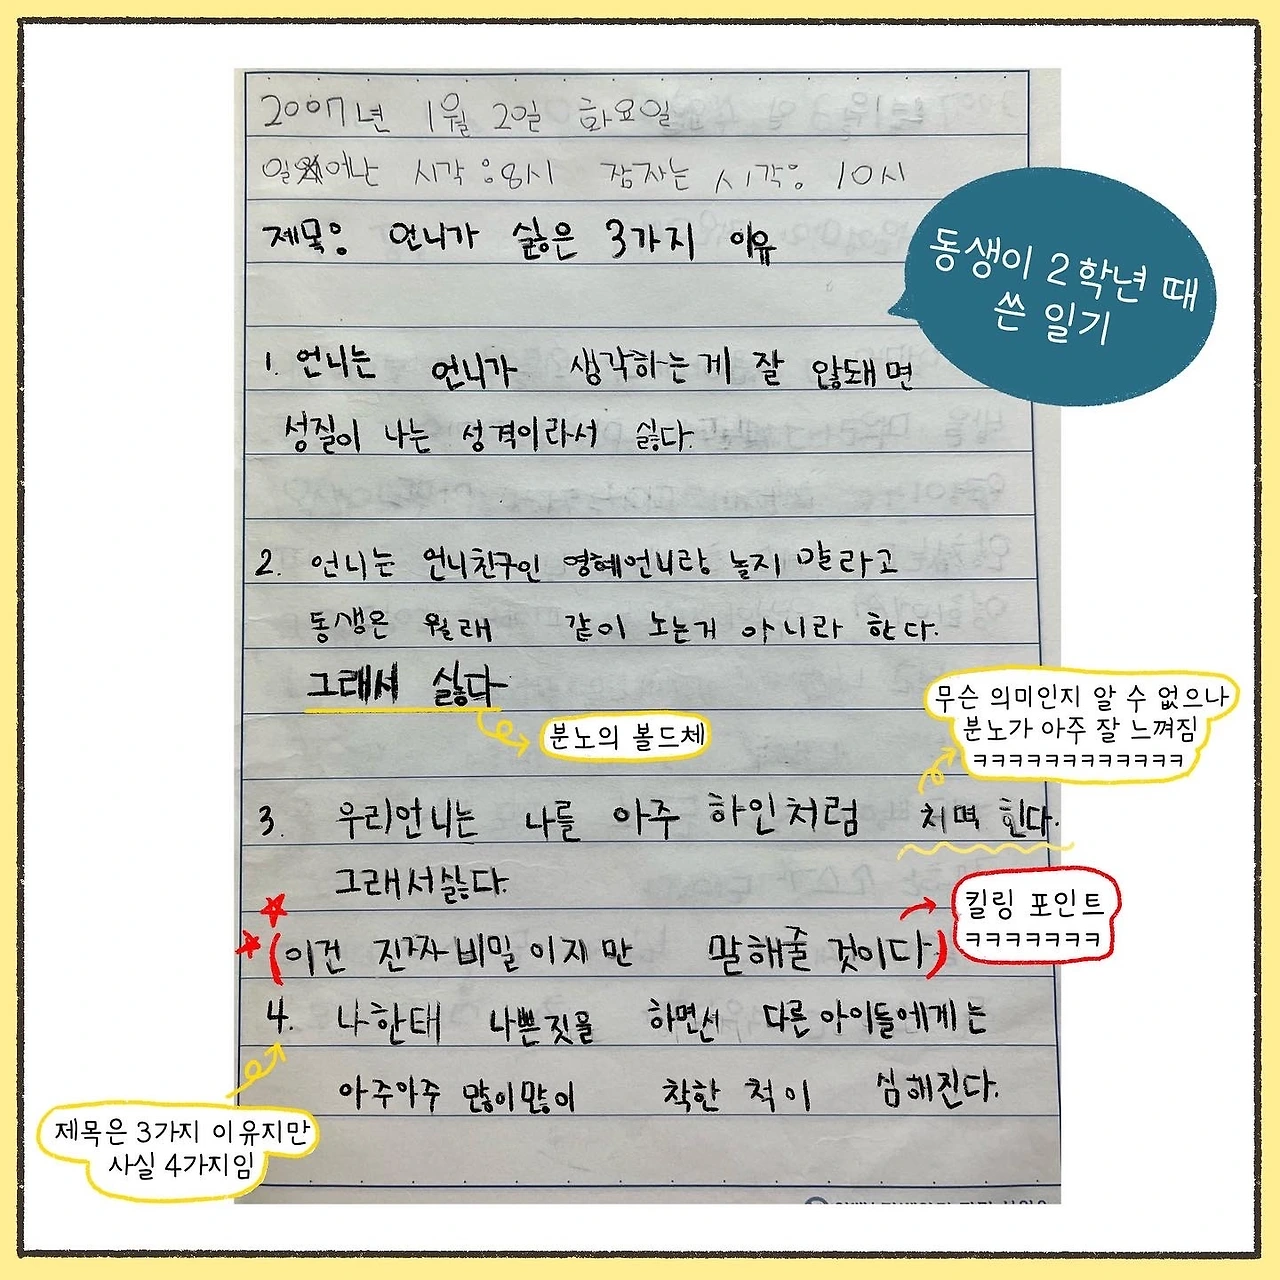 2007년 1월 2일 화요일
일어난 시각:8시 잠자는 시각: 10시
제목: 언니가 싫은 3가지 이유
동생이 2학년 때
쓴 일기
1. 언니는 언니가 생각하는게 잘 않돼면
성질이 나는 성격이라서 싫다.
2. 언니는 언니친구인 영혜언니랑 놀지 말라고
동생은 원래 같이 노는거 아니라 한다.
그래서 싫다
분노의 볼드체
무슨 의미인지 알 수 없으나
분노가 아주 잘 느껴짐
ㅋㅋㅋㅋㅋㅋㅋㅋㅋㅋㅋㅋ
3. 우리언니는 나를 아주 하인처럼 치며 힌다.
그래서싫다.
킬링 포인트
ㅋㅋㅋㅋㅋㅋㅋ
(이건 진짜비밀이지만 말해줄 것이다)
4. 나한태 나쁜짓을 하면서 다른아이들에게는
아주아주 많이많이 착한 척이 심해진다.
제목은 3가지 이유지만
사실 4가지임